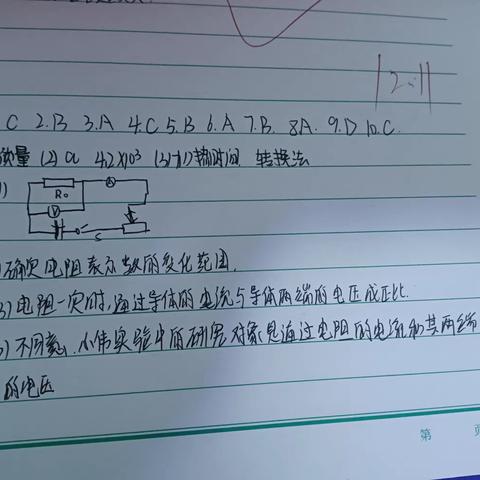 12.11
C 2.B 3.A 4.C 5.B 6.A 7.B. 8A. 9.D 10.C.
质量 (2) a 4.2×10³ (3) 加热时间 转换法
1)
R₀ A
V
S
确定电阻表示数的变化范围.
3) 电阻一定时,通过导体的电流与导体两端的电压成正比.
不同意. 小伟实验中的研究对象是通过电阻的电流和其两端
的电压
第 页